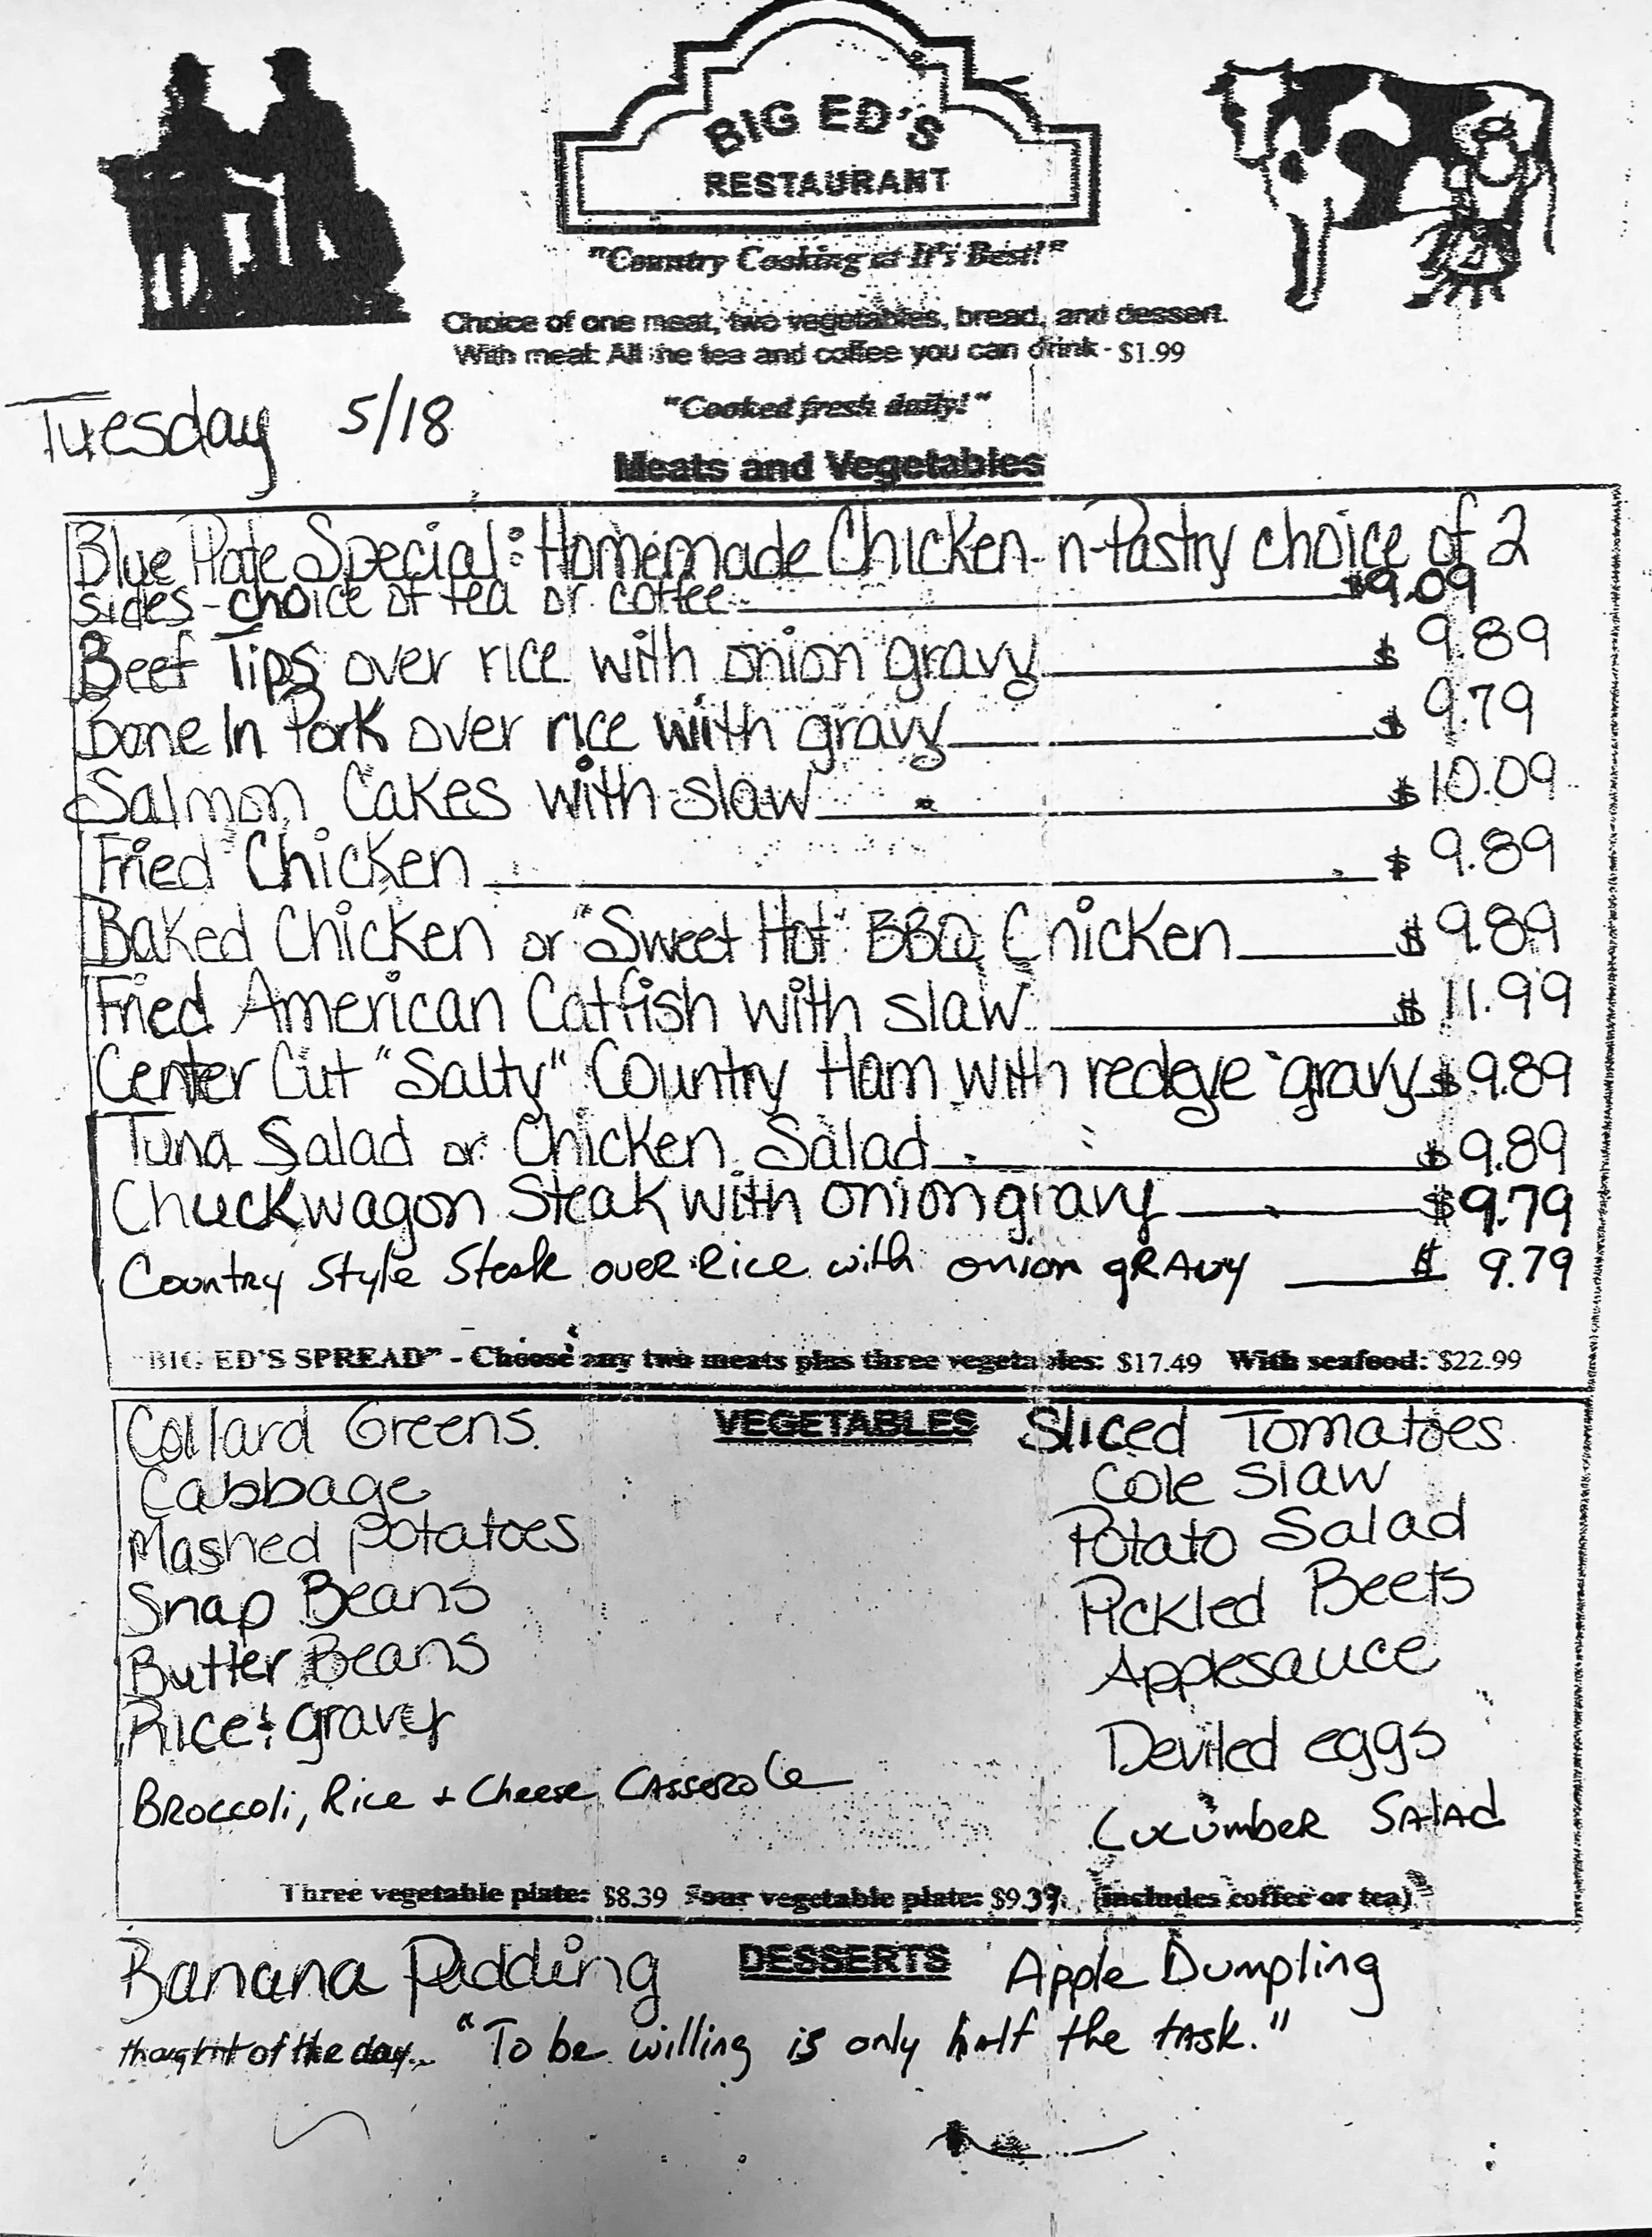 BIG ED'S
RESTAURANT
"Country Cooking at It's Best!"
Choice of one meat, two vegetables, bread, and dessert.
With meal: All the tea and coffee you can drink - $1.99
Tuesday 5/18
"Cooked fresh daily!"
Meats and Vegetables
Blue Plate Special: Homemade Chicken-n-Pastry choice of 2
sides - choice of tea or coffee $9.09
Beef Tips over rice with onion gravy $ 9.89
Bone In Pork over rice with gravy $ 9.79
Salmon Cakes with slaw $ 10.09
Fried Chicken $ 9.89
Baked Chicken or "Sweet Hot" BBQ Chicken $ 9.89
Fried American Catfish with slaw $ 11.99
Center Cut "Salty" Country Ham with redeye gravy $ 9.89
Tuna Salad or Chicken Salad $ 9.89
Chuckwagon Steak with onion gravy $ 9.79
Country Style Steak over Rice with onion gravy $ 9.79
"BIG ED'S SPREAD" - Choose any two meats plus three vegetables: $17.49 With seafood: $22.99
VEGETABLES
Collard Greens
Cabbage
Mashed potatoes
Snap Beans
Butter Beans
Rice & gravy
Broccoli, Rice + Cheese Casserole
Sliced Tomatoes
Cole Slaw
Potato Salad
Pickled Beets
Applesauce
Deviled eggs
Cucumber Salad
Three vegetable plate: $8.39 Four vegetable plate: $9.39 (includes coffee or tea)
DESSERTS
Banana Pudding
Apple Dumpling
thought of the day... "To be willing is only half the task."